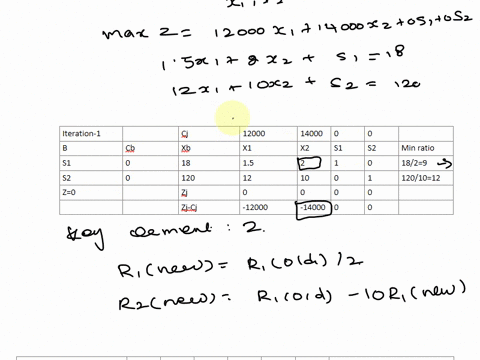 max Z = 12000 x1 + 14000 x2 + 0S1 + 0S2
1.5x1 + 2x2 + S1 = 18
12x1 + 10x2 + S2 = 120
Iteration-1 Cj 12000 14000 0 0
B Cb Xb X1 X2 S1 S2 Min ratio
S1 0 18 1.5 2 1 0 18/2=9 →
S2 0 120 12 10 0 1 120/10=12
Z=0 Zj 0 0 0 0
Zj-Cj -12000 -14000 0 0
Key element : 2.
R1(new) = R1(old) / 2
R2(new) = R1(old) - 10R1(new)